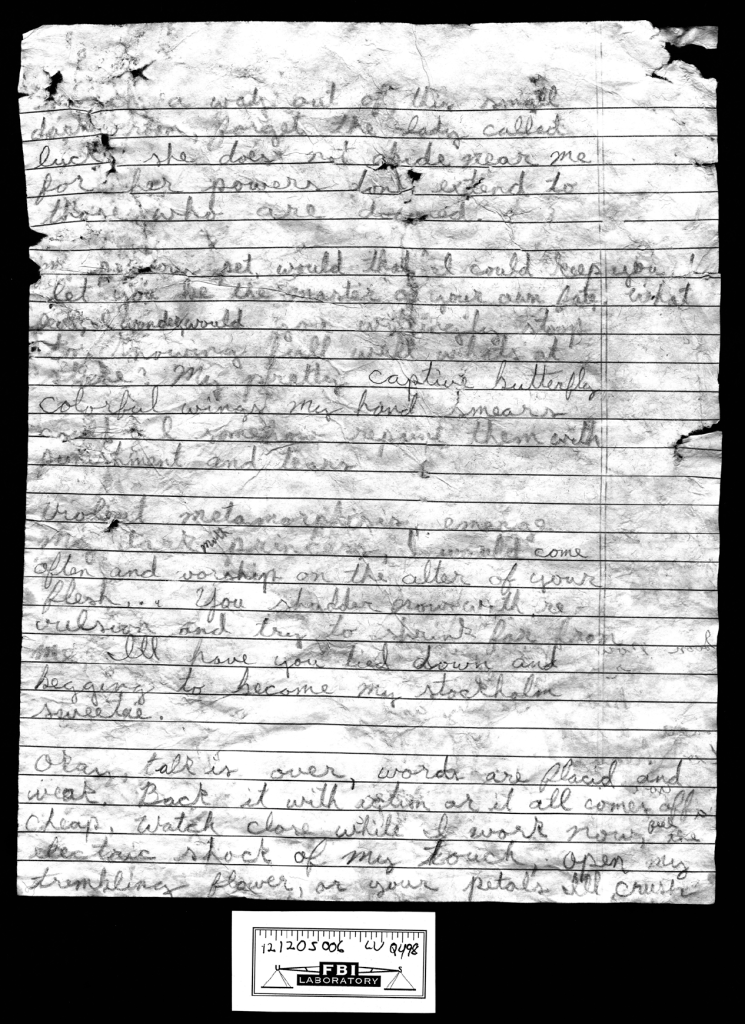 a way out of this small
dark room, forget the lady called
luck she does not abide near me
for her powers don't extend to
those who are
set, would that I could keep you!
let you be the master of your own fate, what
wonder, would you stoop
knowing full well what's at
My pretty captive butterfly
colorful wings my hand smears
I somehow repaint them with
punishment and tears
Violent metamorphosis, emerge
my dark moth princess, I would come
often and worship on the alter of your
flesh... You shudder with re-
vulsion and try to shrink far from
me. I'll have you tied down and
begging to become my stockholm
sweetie.
Okay, talk is over, words are placid and
weak. Back it with action or it all comes off
cheap. Watch close while I work now, feel the
electric shock of my touch, open my
trembling flower, or your petals I'll crush
121205006 LV Q498
FBI
LABORATORY